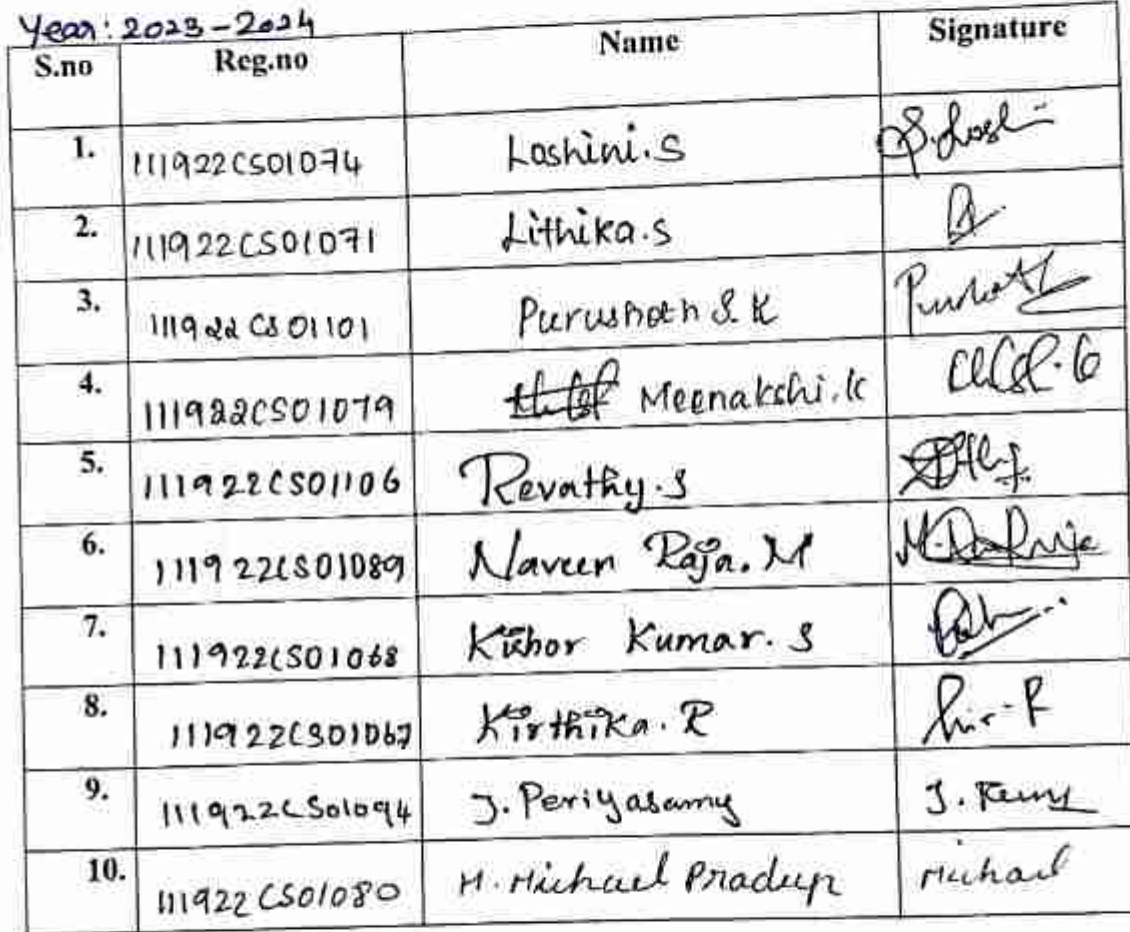 Year: 2023-2024
S.no Reg.no Name Signature
1. 111922CS01074 Loshini.S
2. 111922CS01071 Lithika.S
3. 111922CS01101 Purushoth S.K
4. 111922CS01079 Meenakshi.K
5. 111922CS01106 Revathy.S
6. 111922CS01089 Naveen Raja.M
7. 111922CS01068 Kishor Kumar.S
8. 111922CS01067 Kirthika.R
9. 111922CS01094 J.Periyasamy
10. 111922CS01080 M.Michael Pradeep Michael